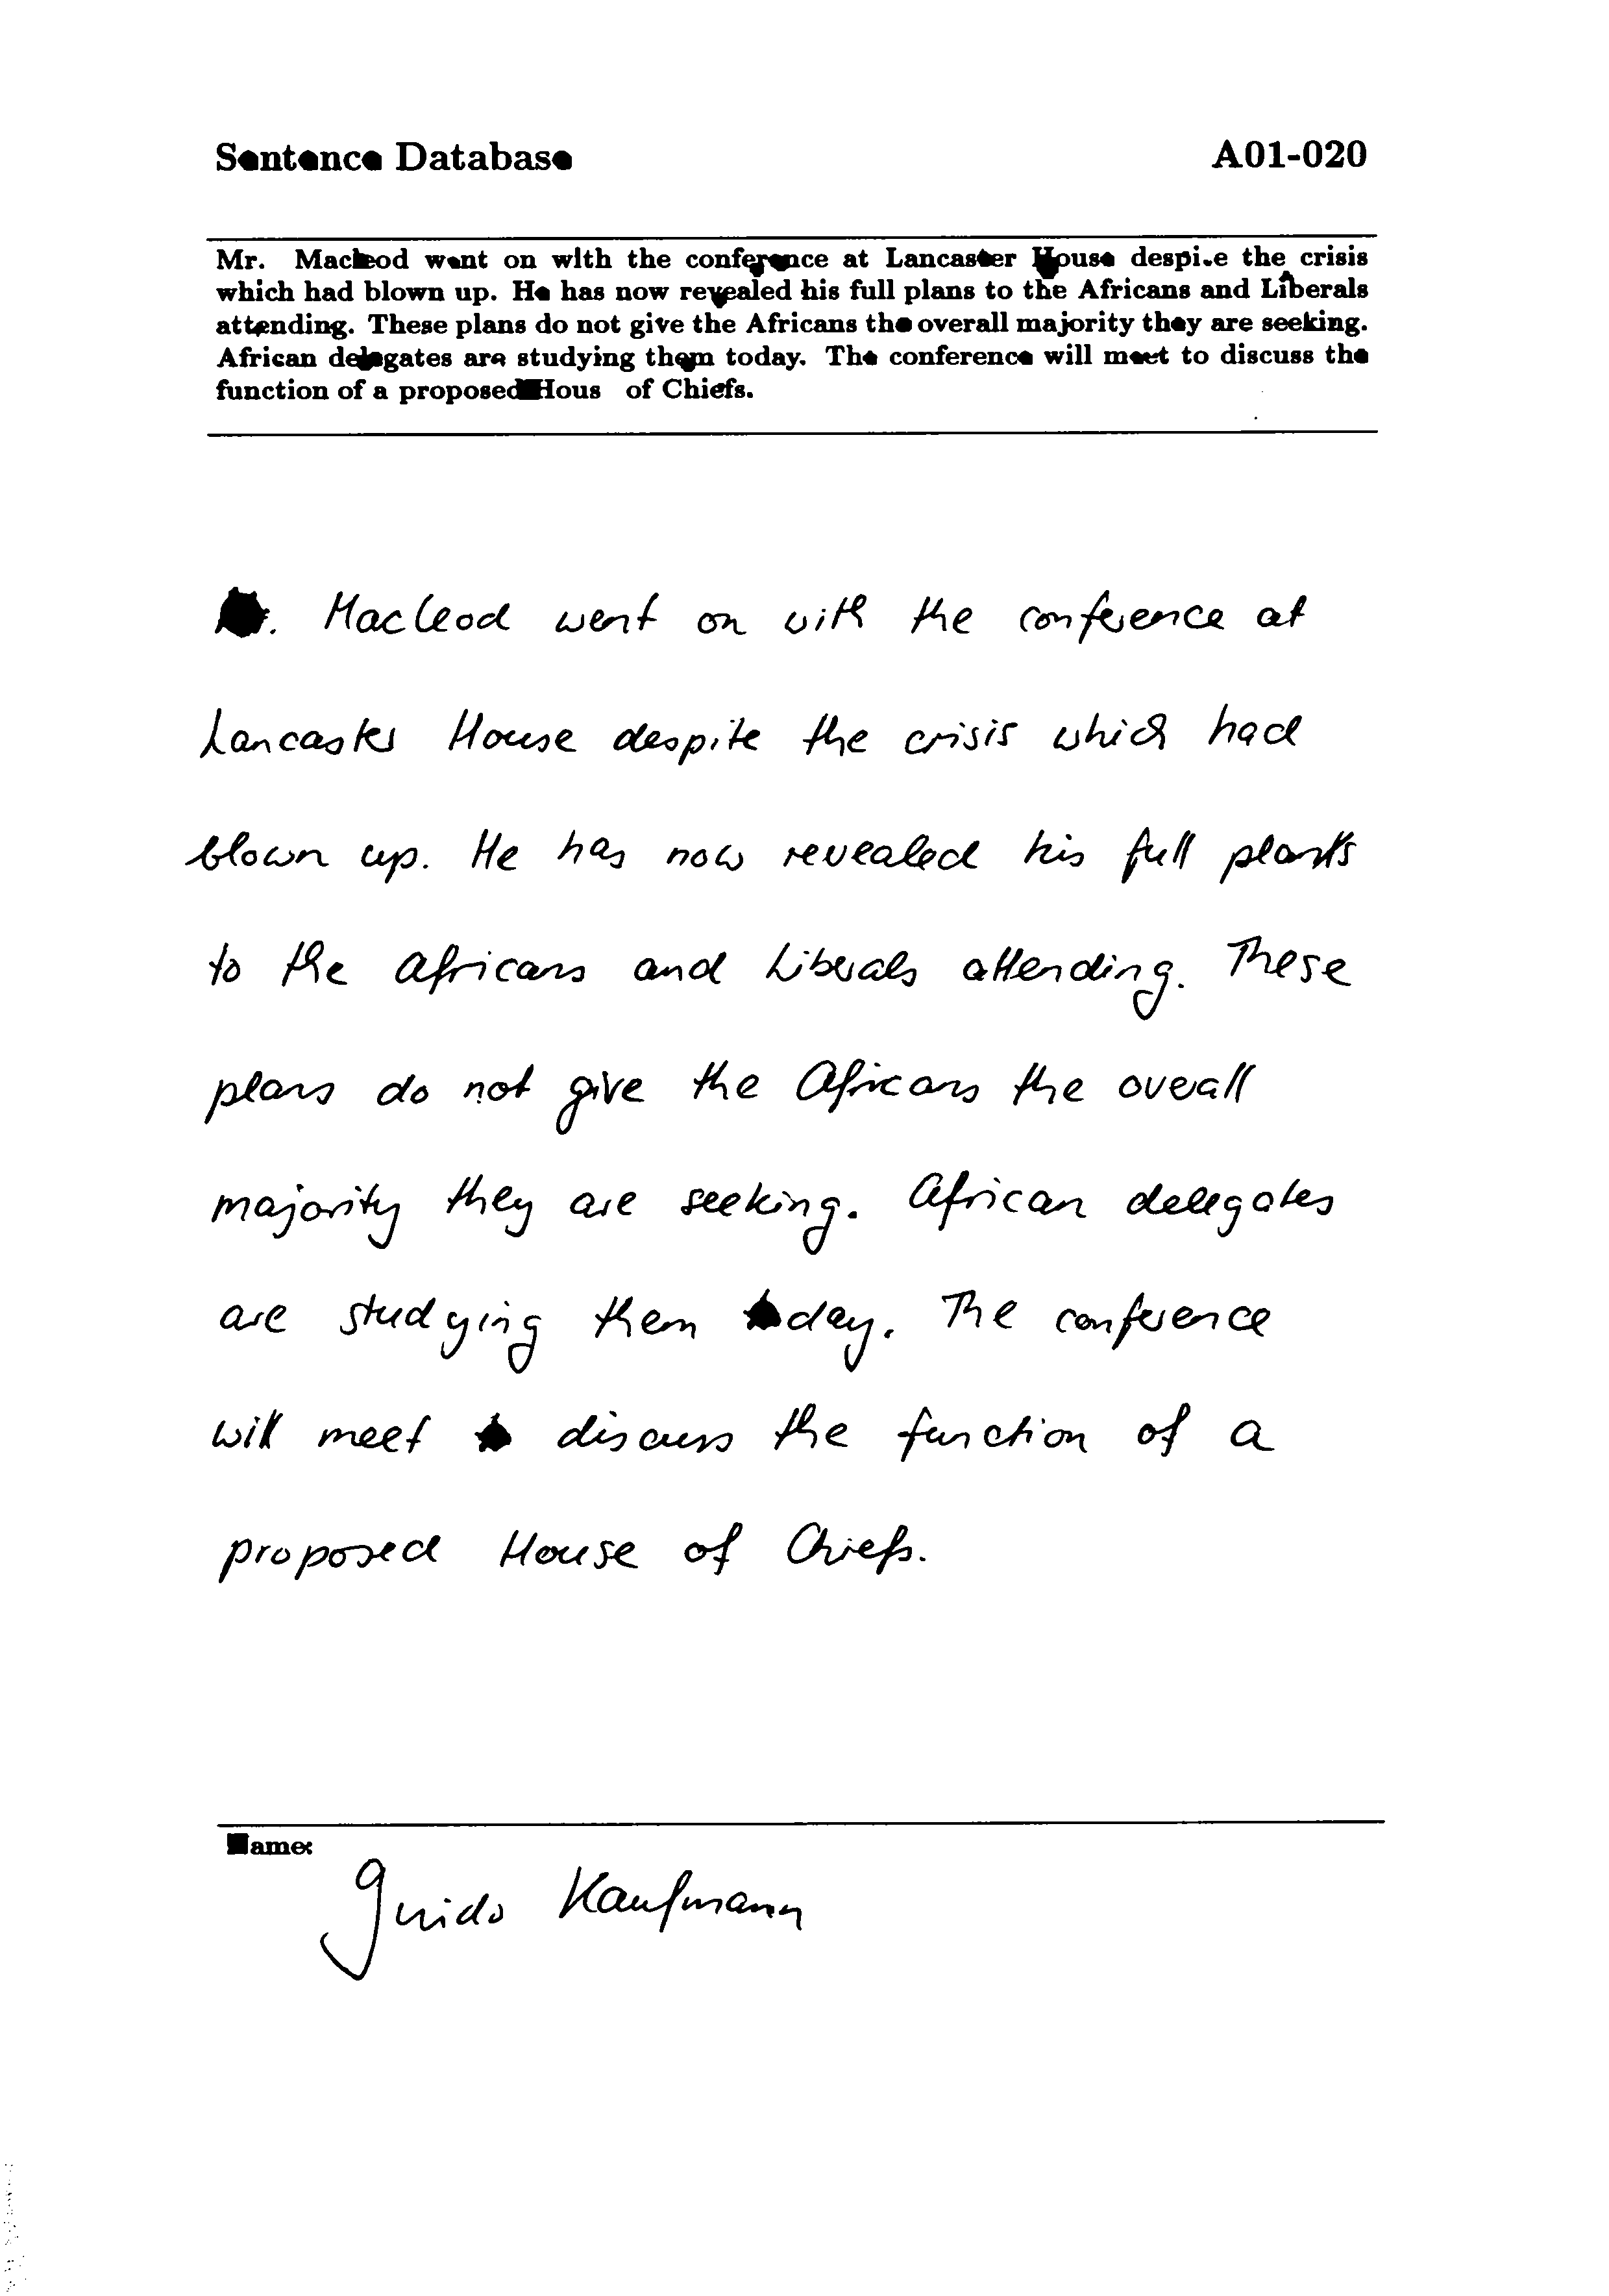 Sentence Database A01-020
Mr. Macleod went on with the conference at Lancaster House despite the crisis
which had blown up. He has now revealed his full plans to the Africans and Liberals
attending. These plans do not give the Africans the overall majority they are seeking.
African delegates are studying them today. The conference will meet to discuss the
function of a proposed Hous of Chiefs.
Macleod went on with the conference at
Lancaster House despite the crisis which had
blown up. He has now revealed his full plants
to the Africans and Liberals attending. These
plans do not give the Africans the overall
majority they are seeking. African delegates
are studying them today. The conference
will meet discuss the function of a
proposed House of Chiefs.
Name:
Guido Kaufmann